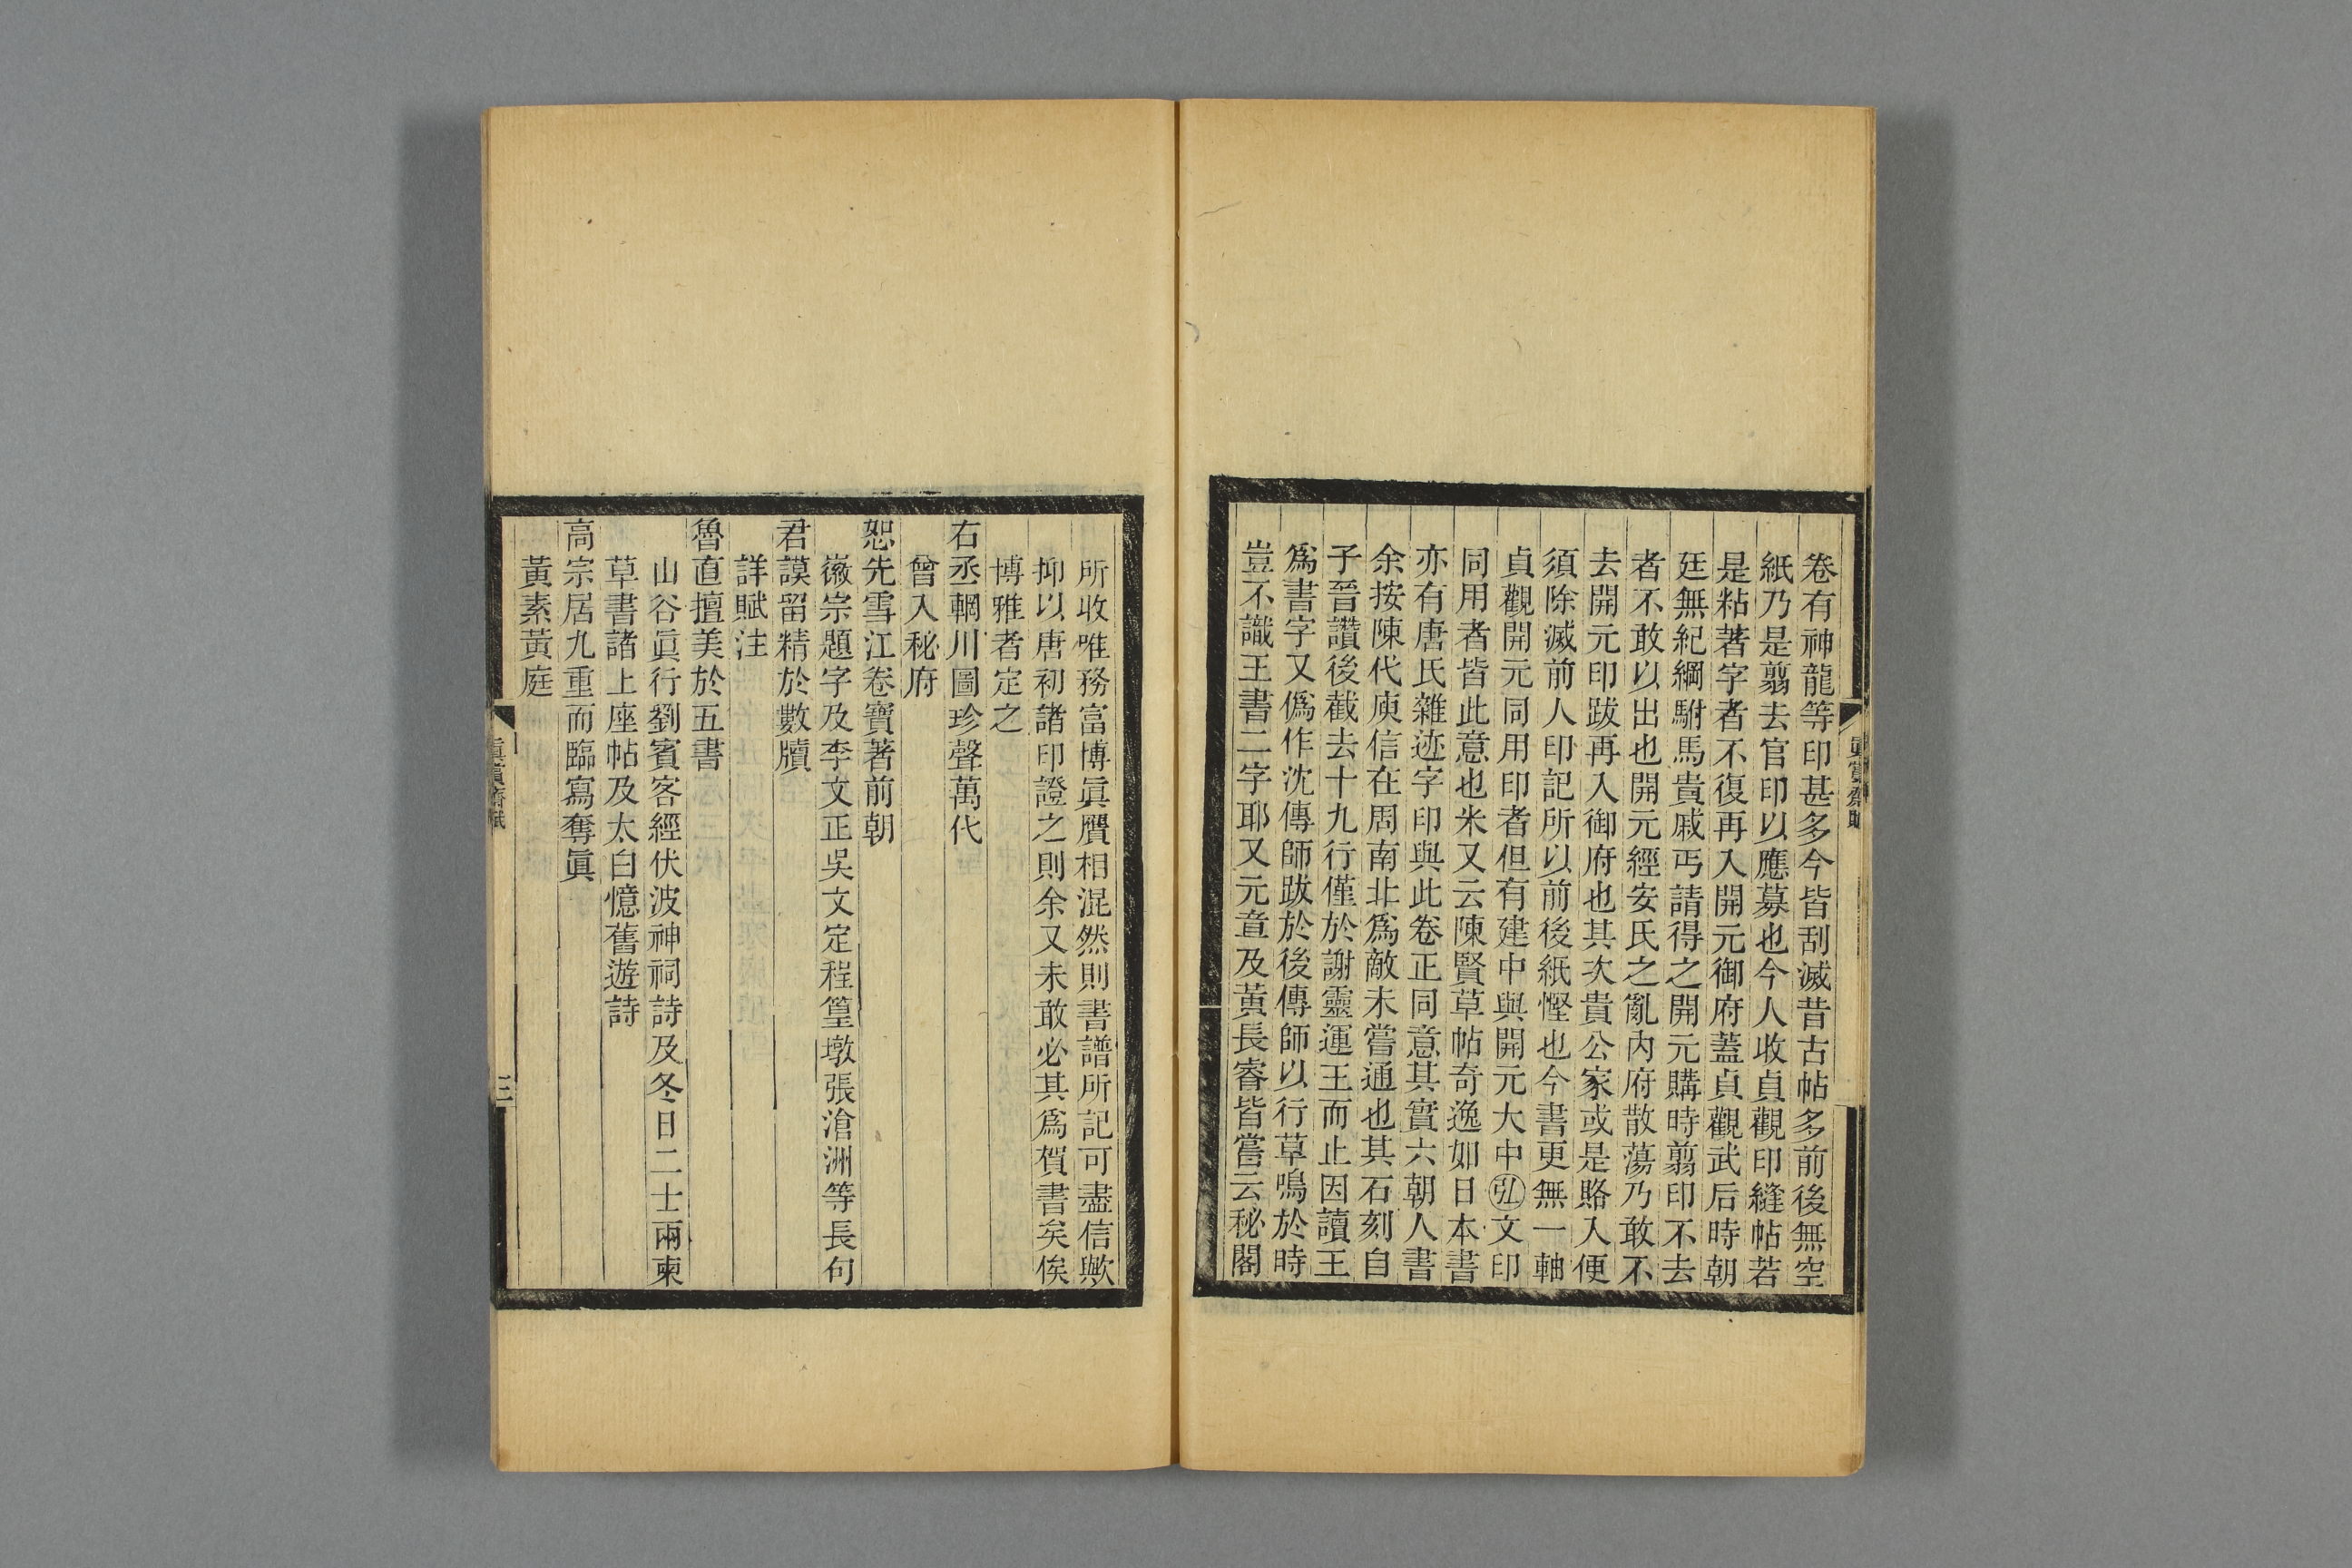 卷有神龍等印甚多今皆刮滅昔古帖多前後無空
紙乃是翦去官印以應募也今人收貞觀印縫帖若
是粘著字者不復再入開元御府蓋貞觀武后時朝
廷無紀綱駙馬貴戚丐請得之開元購時翦印不去
者不敢以出也開元經安氏之亂內府散蕩乃敢不
去開元印跋再入御府也其次貴公家或是賂入便
須除滅前人印記所以前後紙慳也今書更無一軸
貞觀開元同用印者但有建中與開元大中弘文印
同用者皆此意也米又云陳賢草帖奇逸如日本書
亦有唐氏雜迹字印與此卷正同意其實六朝人書
余按陳代庾信在周南北爲敵未嘗通也其石刻自
子晉讚後截去十九行僅於謝靈運王而止因讀王
爲書字又僞作沈傳師跋於後傳師以行草鳴於時
豈不識王書二字耶又元章及黃長睿皆嘗云秘閣
所收唯務富博眞贋相混然則書譜所記可盡信歟
抑以唐初諸印證之則余又未敢必其爲賀書矣俟
博雅者定之
右丞輞川圖珍聲萬代
曾入秘府
恕先雪江卷寶著前朝
徽宗題字及李文正吳文定程篁墩張滄洲等長句
君謨留精於數牘
詳賦注
魯直擅美於五書
山谷眞行劉賓客經伏波神祠詩及冬日二士兩柬
草書諸上座帖及太白憶舊遊詩
高宗居九重而臨寫奪眞
黃素黃庭
眞賞齋賦
三